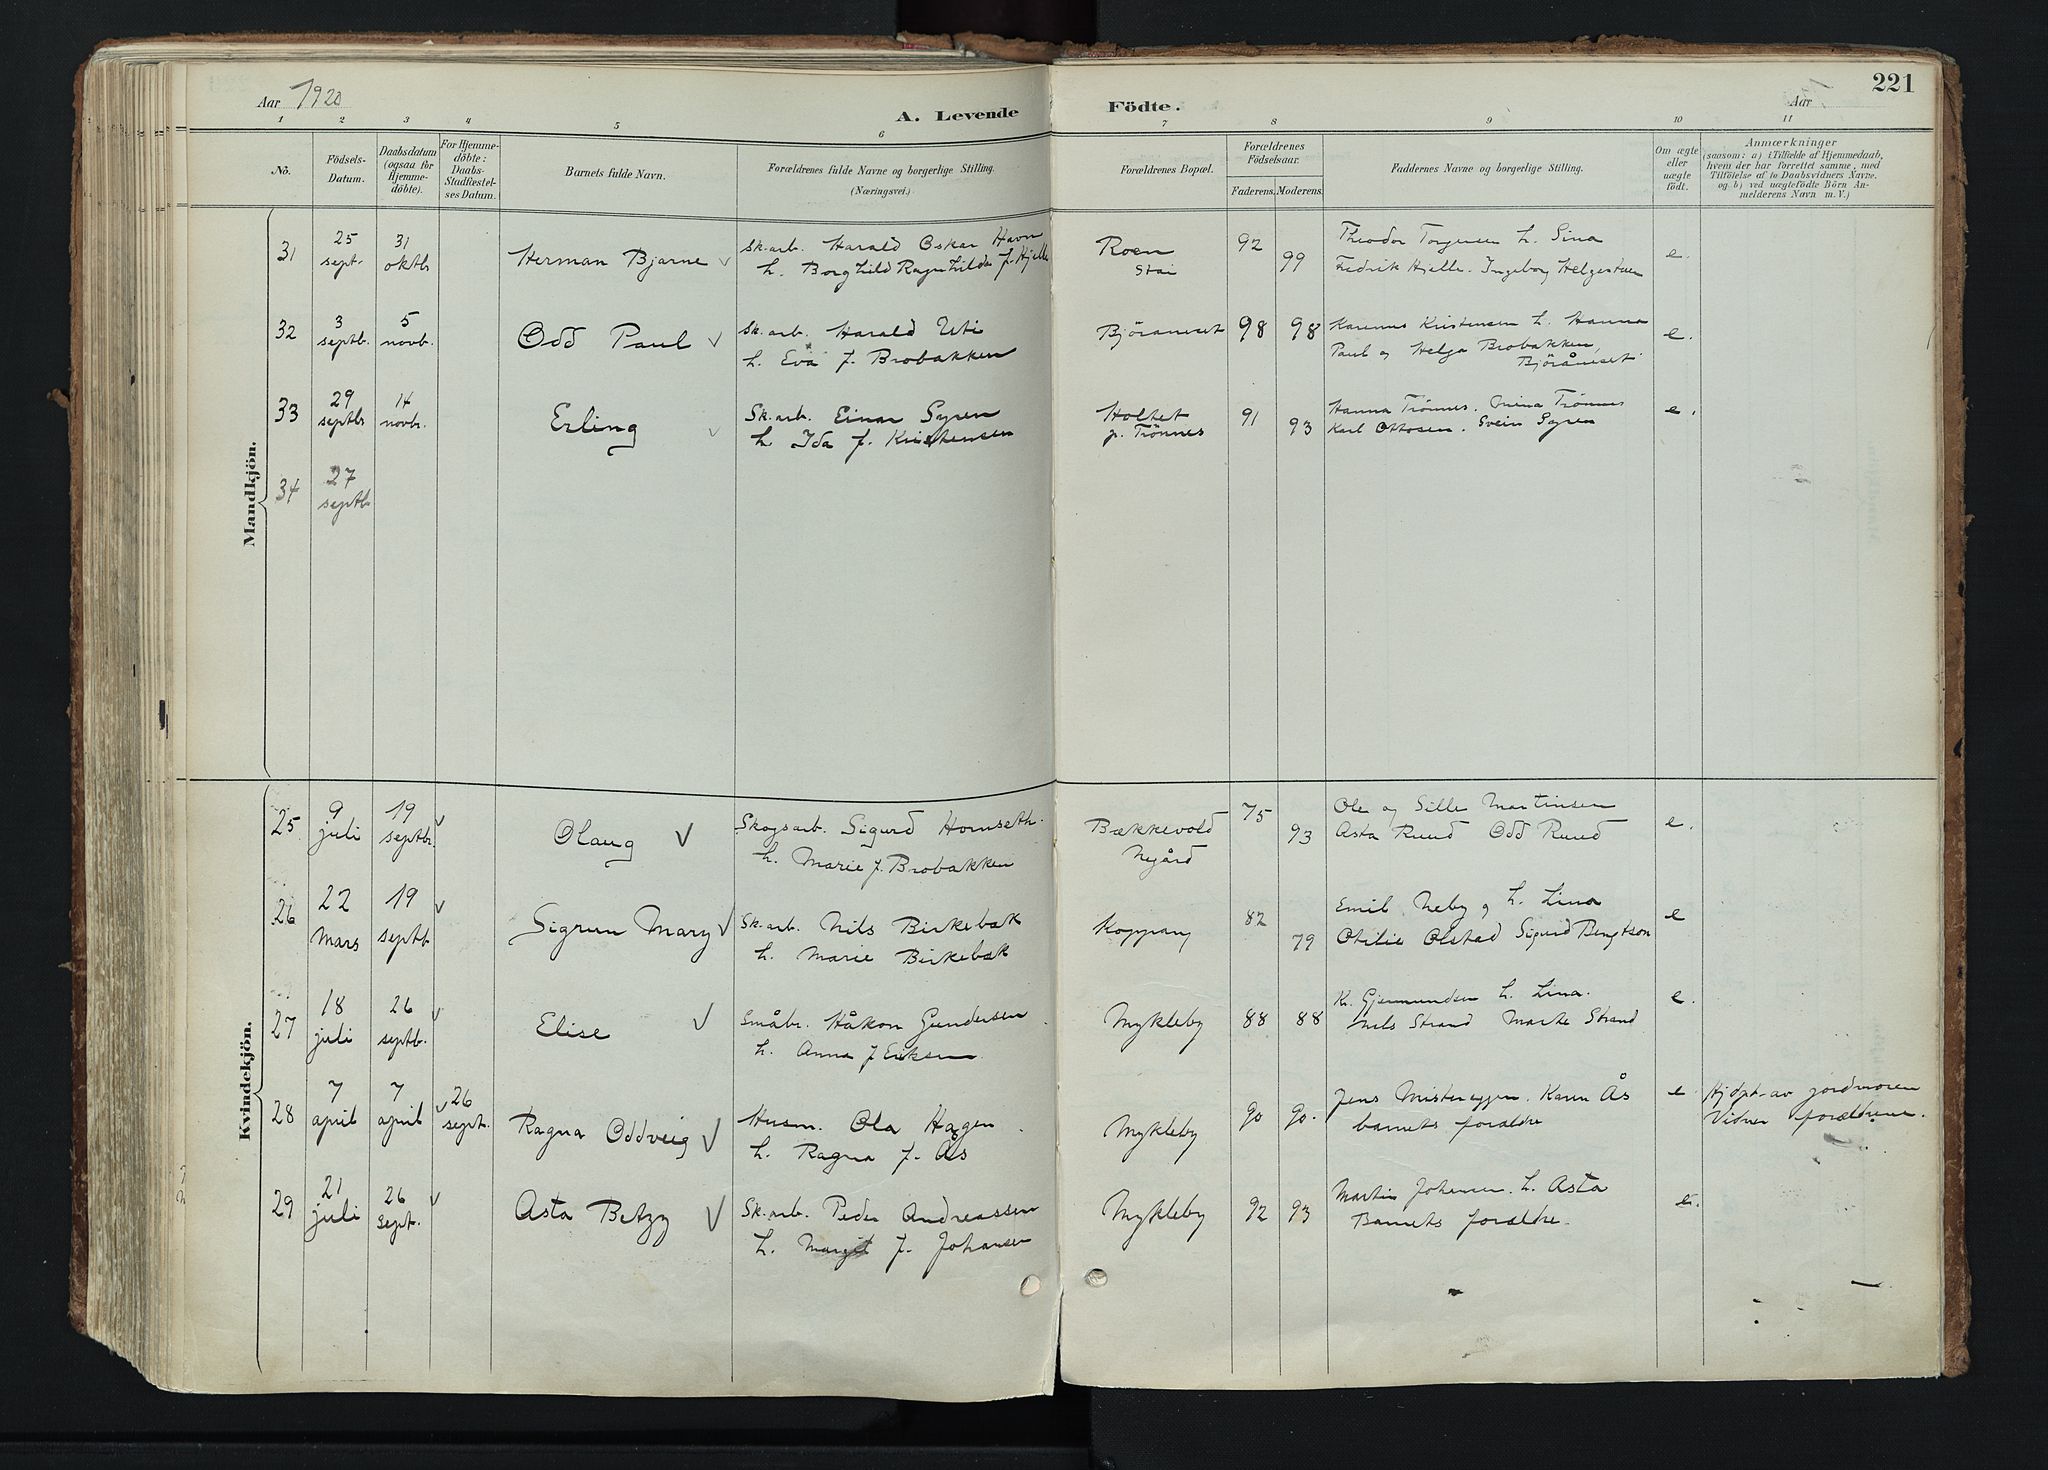 Aar 1920
A. Levende Födte.
Aar
221
1 2 3 4 5 6 7 8 9 10 11
No.
Födsels-
Datum.
Daabsdatum
(ogsaa for
Hjemme-
döbte).
For Hjemme-
döbte:
Daabs-
Stadfæstel-
ses Datum.
Barnets fulde Navn.
Forældrenes fulde Navne og borgerlige Stilling.
(Næringsvei.)
Forældrenes Bopæl.
Forældrenes
Födselsaar.
Faderens.
Moderens.
Faddernes Navne og borgerlige Stilling.
Om ægte
eller
uægte
födt.
Anmærkninger
(saasom: a) i Tilfælde af Hjemmedaab,
hvem der har forrettet samme, med
Tilföielse af to Daabsvidners Navne.
og b) ved uægtefödte Börn An-
melderens Navn m. V.)
Mandkjön.
31 25 sept. 31 oktbr Herman Bjarne Sk.arb. Harald Oskar Havn
h. Borghild Ragnhilda f. Hjelle
Roen
Stai
92 99
Theodor Torgersen h. Sina
Fredrik Hjelle. Ingeborg Helgestuen
e.
32 3 septb. 5 novb. Odd Paul Sk.arb. Harald Uti
h. Eva f. Brobakken
Björaneset 98 98
Karenus Kristensen h. Hanna
Paul og Helga Brobakken,
Björåneset.
e.
33 29 septbr 14 novbr. Erling Sk.arb. Einar Syren
h. Ida f. Kristensen
Holtet
p. Trönnes
91 93
Hanna Trönnes. Mina Trönnes
Karl Ottosen. Svein Syren
e.
34 27 septb.
Kvindekjön.
25 9 juli 19 septbr. Olaug Skogsarb. Sigurd Hornseth.
h. Marie f. Brobakken
Bækkevold
Negård
75 93
Ole og Sille Martinsen
Asta Ruud Odd Ruud
e.
26 22 Mars 19 septb. Sigrun Mary Sk.arb. Nils Birkebak
h. Marie Birkebak
Koppang 82 79
Emil Neby og h. Lina
Otilie Olstad Sigurd Bengtson
e
27 18 juli 26 septb. Elise Småbr. Håkon Gundersen
h. Anna f Eriksen
Mykleby 88 88
K. Gjermundsen h. Lina.
Nils Strand Marte Strand
e.
28 7 april 7 april 26 sept. Ragna Oddveig Husm. Ola Hagen
h. Ragna f. Ås
Mykleby 90 90.
Jens Misterèggen. Karen Ås
barnets foraldre
e Hjdpt. av jordmoren
Vidner forældrene.
29 21 juli 26 sept. Asta Betzy Sk.arb. Peder Andreassen
h. Margit f. Johansen
Mykleby 92 93
Martin Johansen. h. Asta
Barnets foraldre.
e.